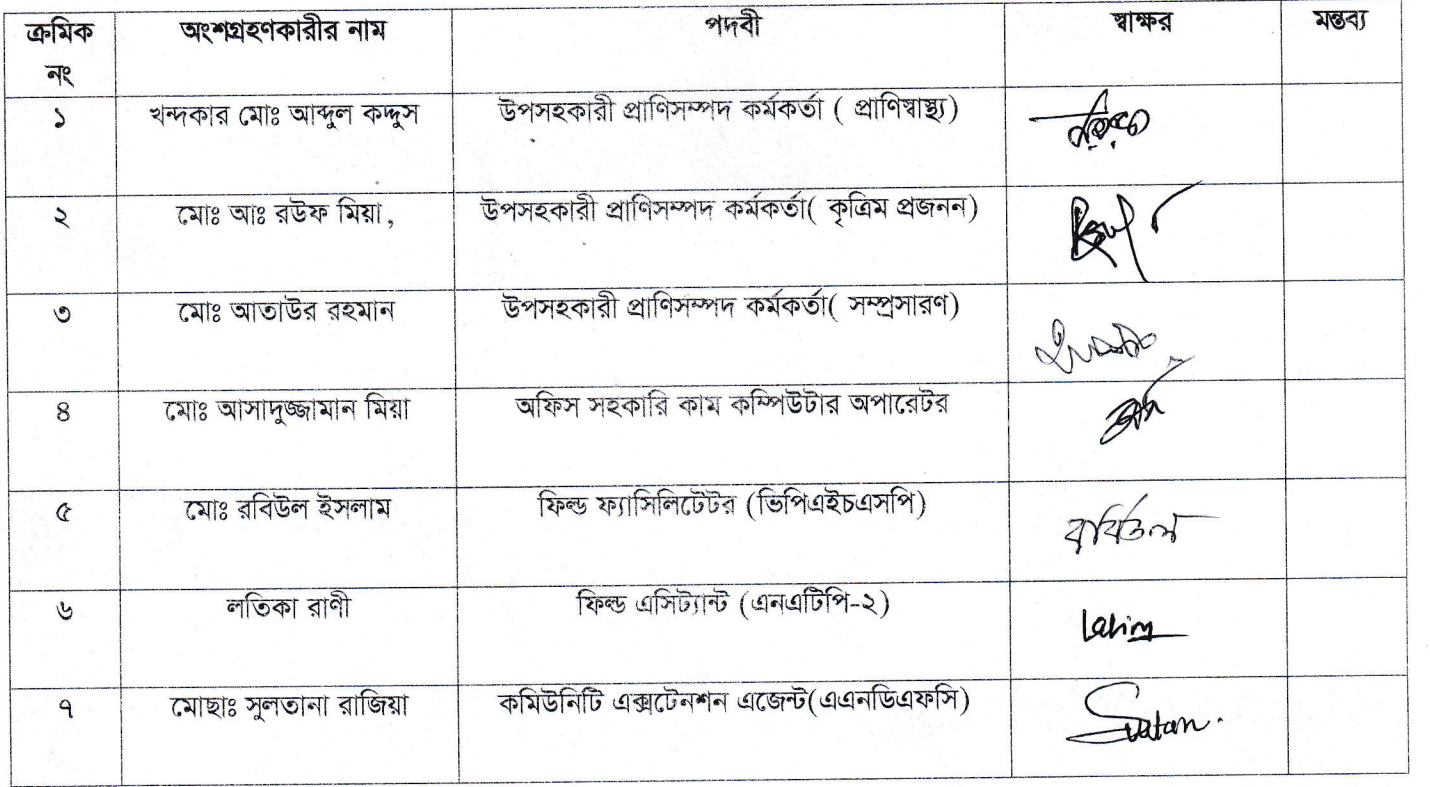 ক্রমিক নং অংশগ্রহণকারীর নাম পদবী স্বাক্ষর মন্তব্য
১ খন্দকার মোঃ আব্দুল কদ্দুস উপসহকারী প্রাণিসম্পদ কর্মকর্তা ( প্রাণিস্বাস্থ্য)
২ মোঃ আঃ রউফ মিয়া , উপসহকারী প্রাণিসম্পদ কর্মকর্তা( কৃত্রিম প্রজনন)
৩ মোঃ আতাউর রহমান উপসহকারী প্রাণিসম্পদ কর্মকর্তা( সম্প্রসারণ)
৪ মোঃ আসাদুজ্জামান মিয়া অফিস সহকারি কাম কম্পিউটার অপারেটর
৫ মোঃ রবিউল ইসলাম ফিল্ড ফ্যাসিলিটেটর (ভিপিএইচএসপি) রবিউল
৬ লতিকা রাণী ফিল্ড এসিট্যান্ট (এনএটিপি-২)
৭ মোছাঃ সুলতানা রাজিয়া কমিউনিটি এক্সটেনশন এজেন্ট(এএনডিএফসি)